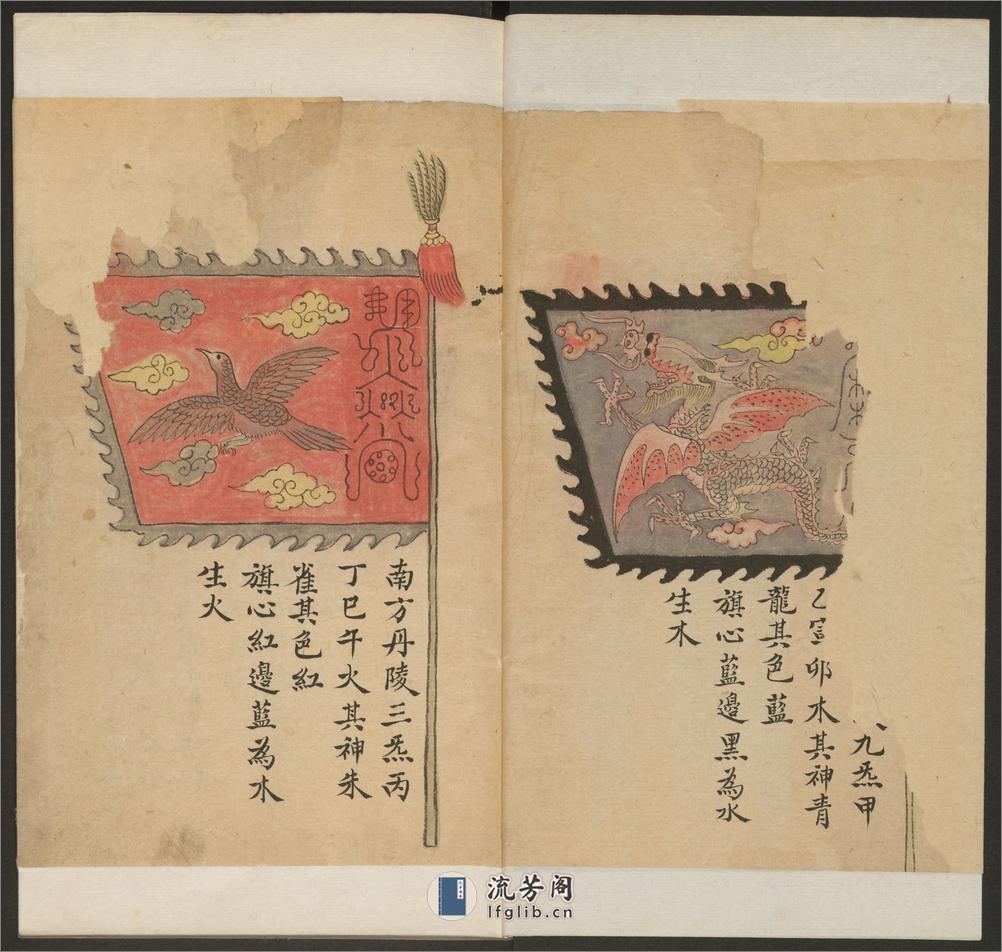 九炁甲
乙寅卯木其神青
龍其色藍
旗心藍邊黑為水
生木
南方丹陵三炁丙
丁巳午火其神朱
雀其色紅
旗心紅邊藍為木
生火
流芳阁
lfglib.cn